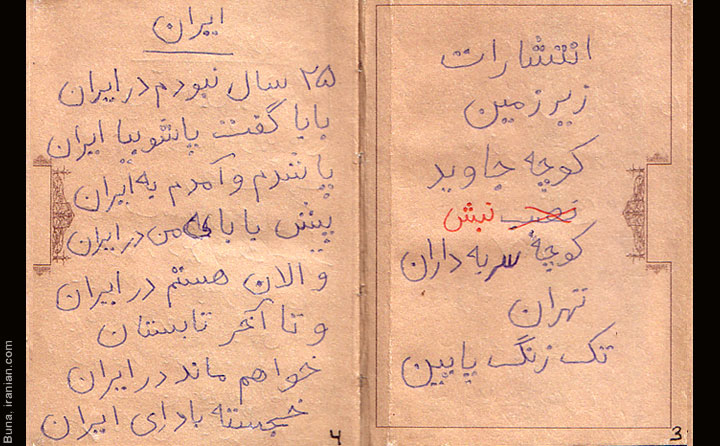 انتشارات
زیر زمین
کوچه جاوید
نبش
کوچهٔ سر به داران
تهران
تک زنگ پایین
3
ایران
۲۵ سال نبودم در ایران
بابا گفت پاشو بیا ایران
پا شدم و آمدم به ایران
پیش بابای من در ایران
و الان هستم در ایران
و تا آخر تابستان
خواهم ماند در ایران
خجسته باد ای ایران
۴
Buna, iranian.com